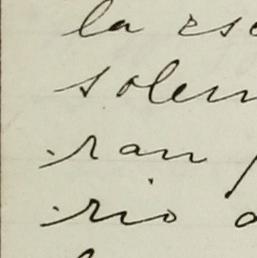 la esc
solem
ran p
rio a